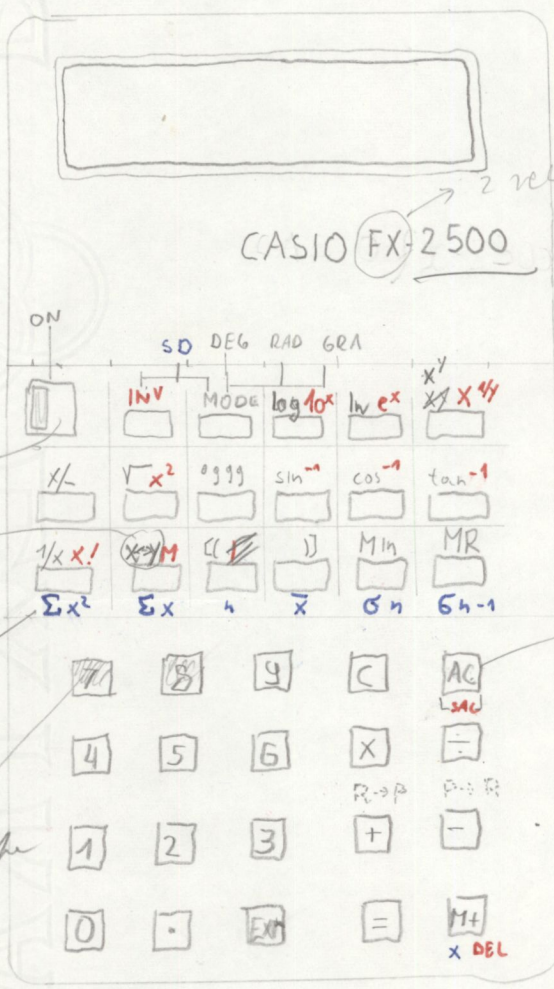 CASIO FX-2500
ON
SD DEG RAD GRA
INV MODE log 10ˣ ln eˣ xʸ x¹/ʸ
√ x² sin⁻¹ cos⁻¹ tan⁻¹
1/x x! X↔Y M [( )] Min MR
Σx² Σx n x̄ σn σn-1
7 8 9 C AC
SAC
4 5 6 × ÷
R→P P→R
1 2 3 + −
0 · EXP = M+
x DEL